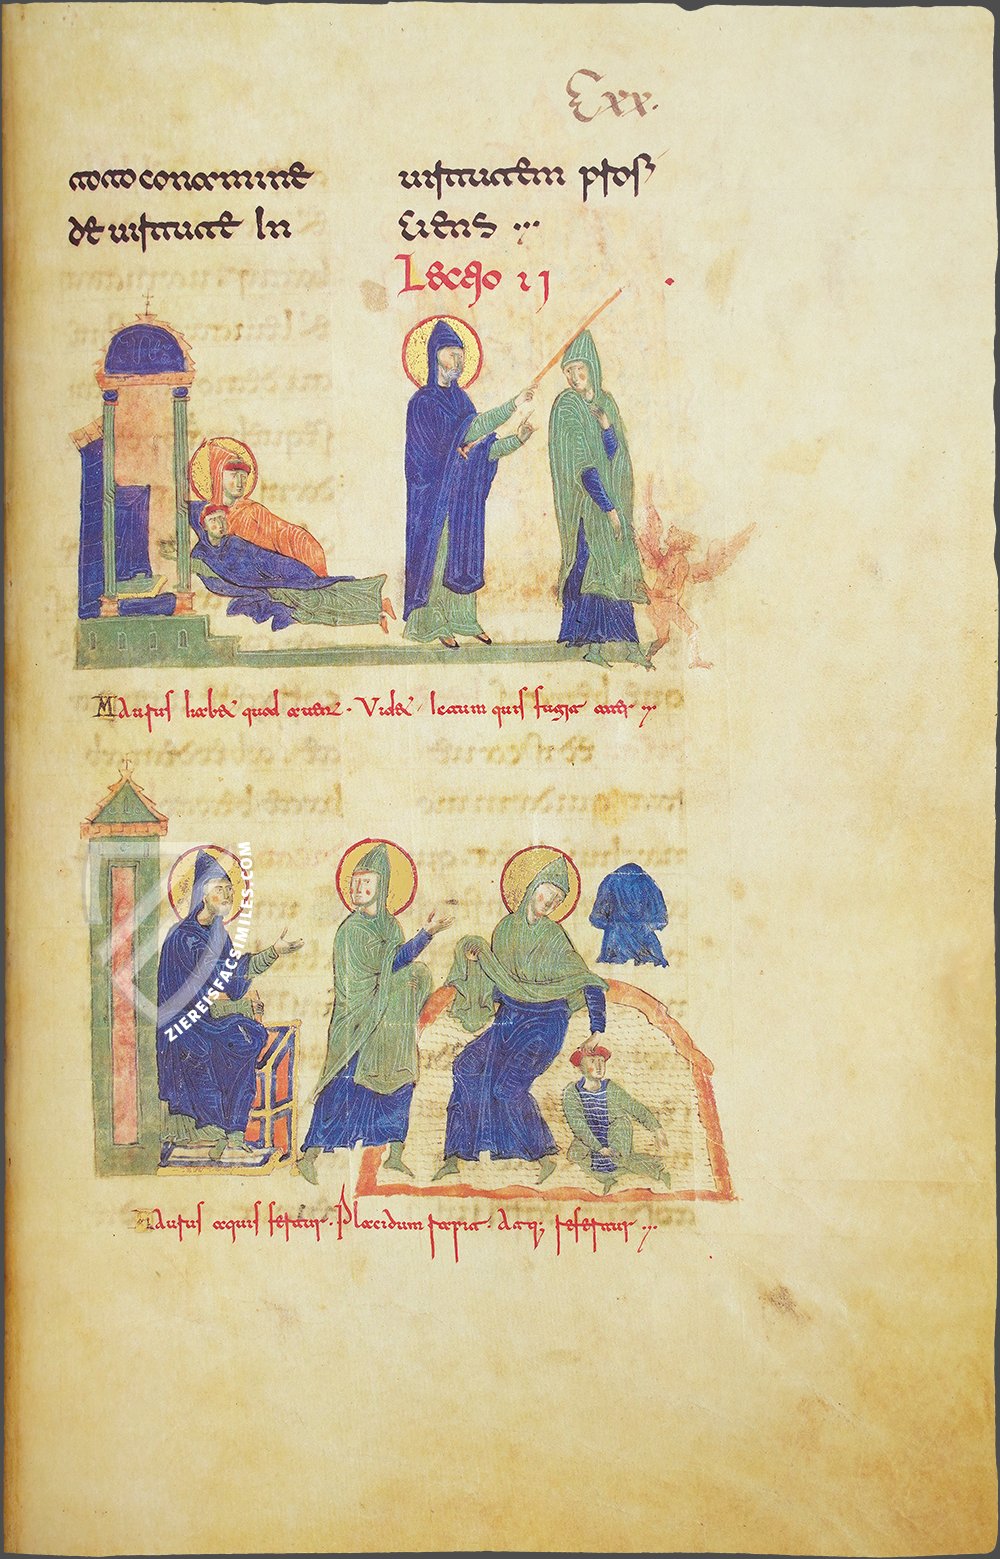 Cxx.
toto conamine
de uirtute In
uirtutem profi
ciens
Lectio II
MAurus habet quod auet. Videt letum quis fugit ater
MAurus aquis fertur. Placidum rapit. Atq; refertur
ZIEREISFACSIMILES.COM